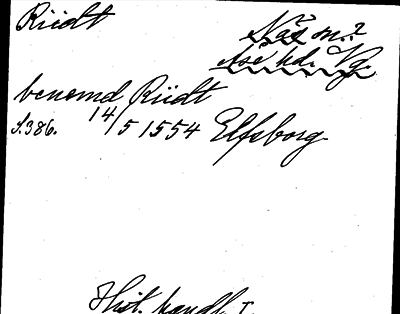 Rüdt
Näs sn.?
Åse hd. Vg.
benemd Rüdt
S.386. 14/5 1554 Elfsborg
Hist. handl. I.